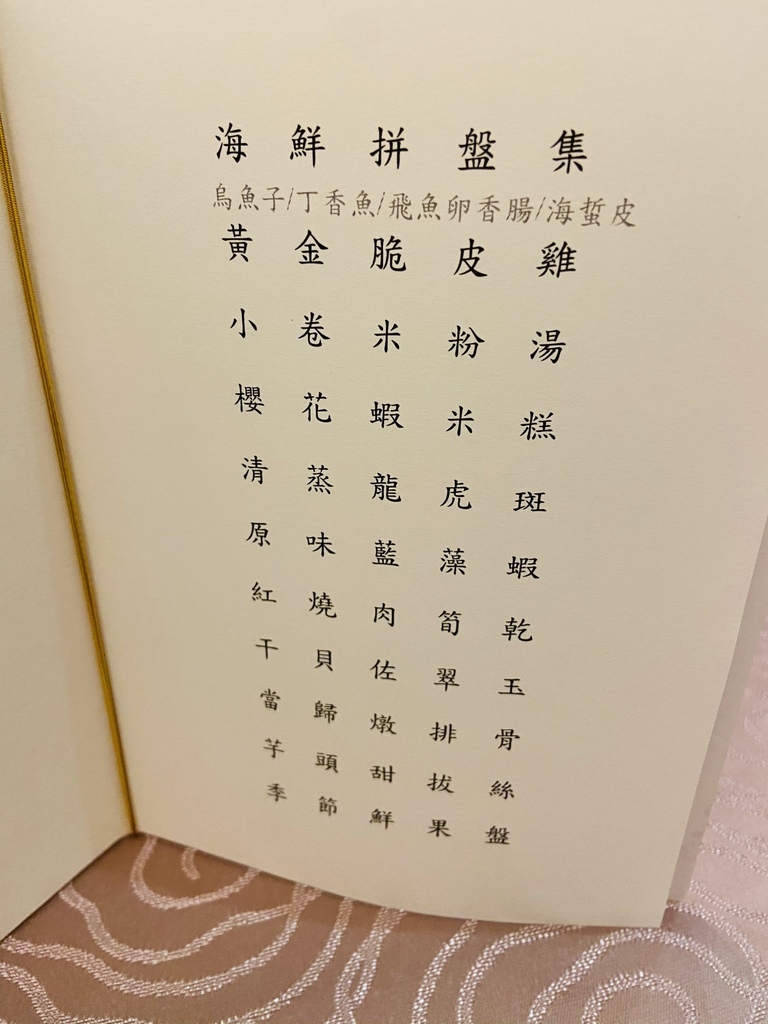 海鮮拼盤集
烏魚子/丁香魚/飛魚卵香腸/海蜇皮
黃金脆皮雞
小卷米粉湯
櫻花蝦米糕
清蒸龍虎斑
原味藍藻蝦
紅燒肉筍乾
干貝佐翠玉
當歸燉排骨
芋頭甜拔絲
季節鮮果盤